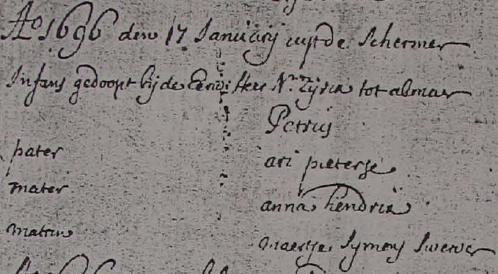 Ao 1696 den 17 Januarij uijt de Schermer
Infans gedoopt bij de Eerw: Heer Nn: Zijria tot alcmar
Petrus
pater ari pieterse
mater anna hendrix
matrin maertje Symons